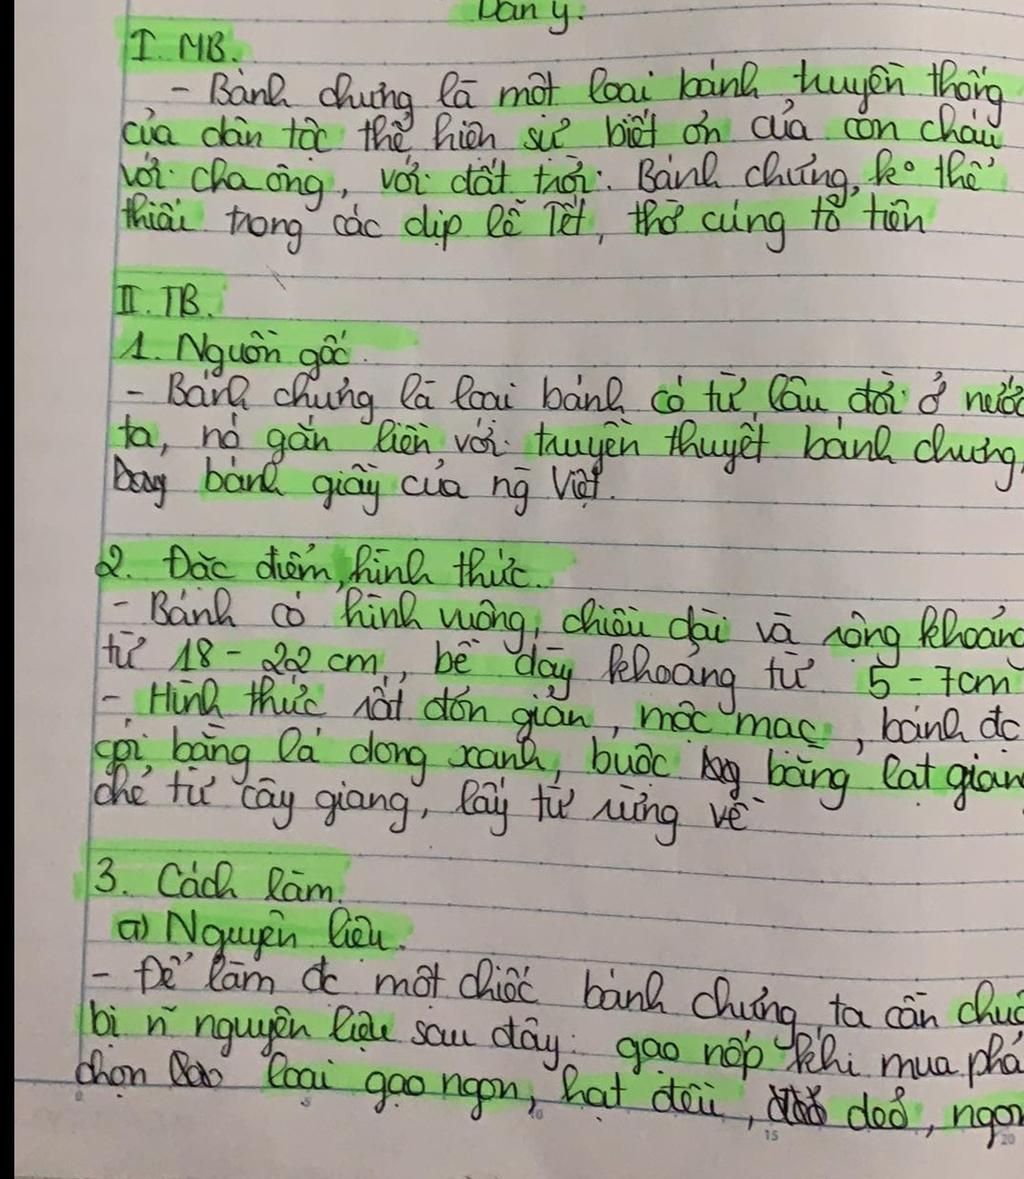 Dàn ý.
I. MB.
- Bánh chưng là một loại bánh truyền thống
của dân tộc thể hiện sự biết ơn của con cháu
với cha ông, với đất trời. Bánh chưng, ko thể
thiếu trong các dịp lễ Tết, thờ cúng tổ tiên
II. TB.
1. Nguồn gốc.
- Bánh chưng là loại bánh có từ lâu đời ở nước
ta, nó gắn liền với truyền thuyết bánh chưng,
bánh giầy của ng Việt.
2. Đặc điểm, hình thức.
- Bánh có hình vuông, chiều dài và rộng khoảng
từ 18 - 22 cm, bề dày khoảng từ 5 - 7cm
- Hình thức rất đơn giản, mộc mạc, bánh đc
gói bằng lá dong xanh, buộc bằng lạt gian
chẻ từ cây giang, lấy từ rừng về
3. Cách làm.
a) Nguyên liệu.
- Để làm đc một chiếc bánh chưng ta cần chuẩ
bị n~ nguyên liệu sau đây: gạo nếp khi mua phả
chọn loại gạo ngon, hạt đều, dẻo, ngon